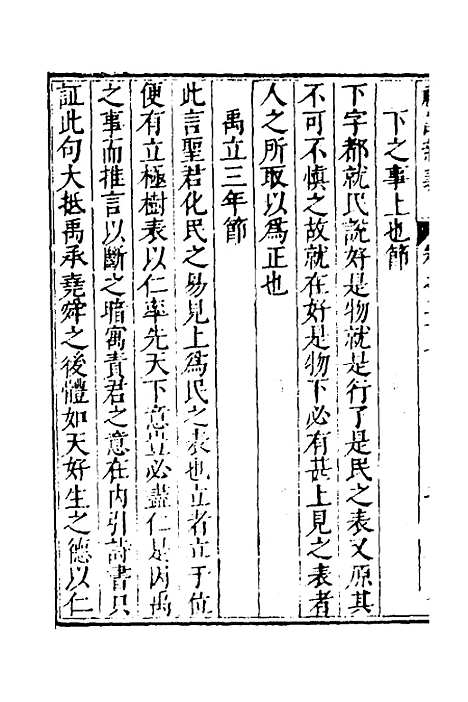 下之事上也節
下字都就民說好是物就是行了是民之表又原其
不可不慎之故就在好是物下必有甚上見之表者
人之所取以為正也
禹立三年節
此言聖君化民之易見上為民之表也立者立于位
便有立極樹表以仁率先天下意豈必盡仁是因禹
之事而推言以斷之暗寓責君之意在內引詩書只
証此句大抵禹承堯舜之後體如天好生之德以仁